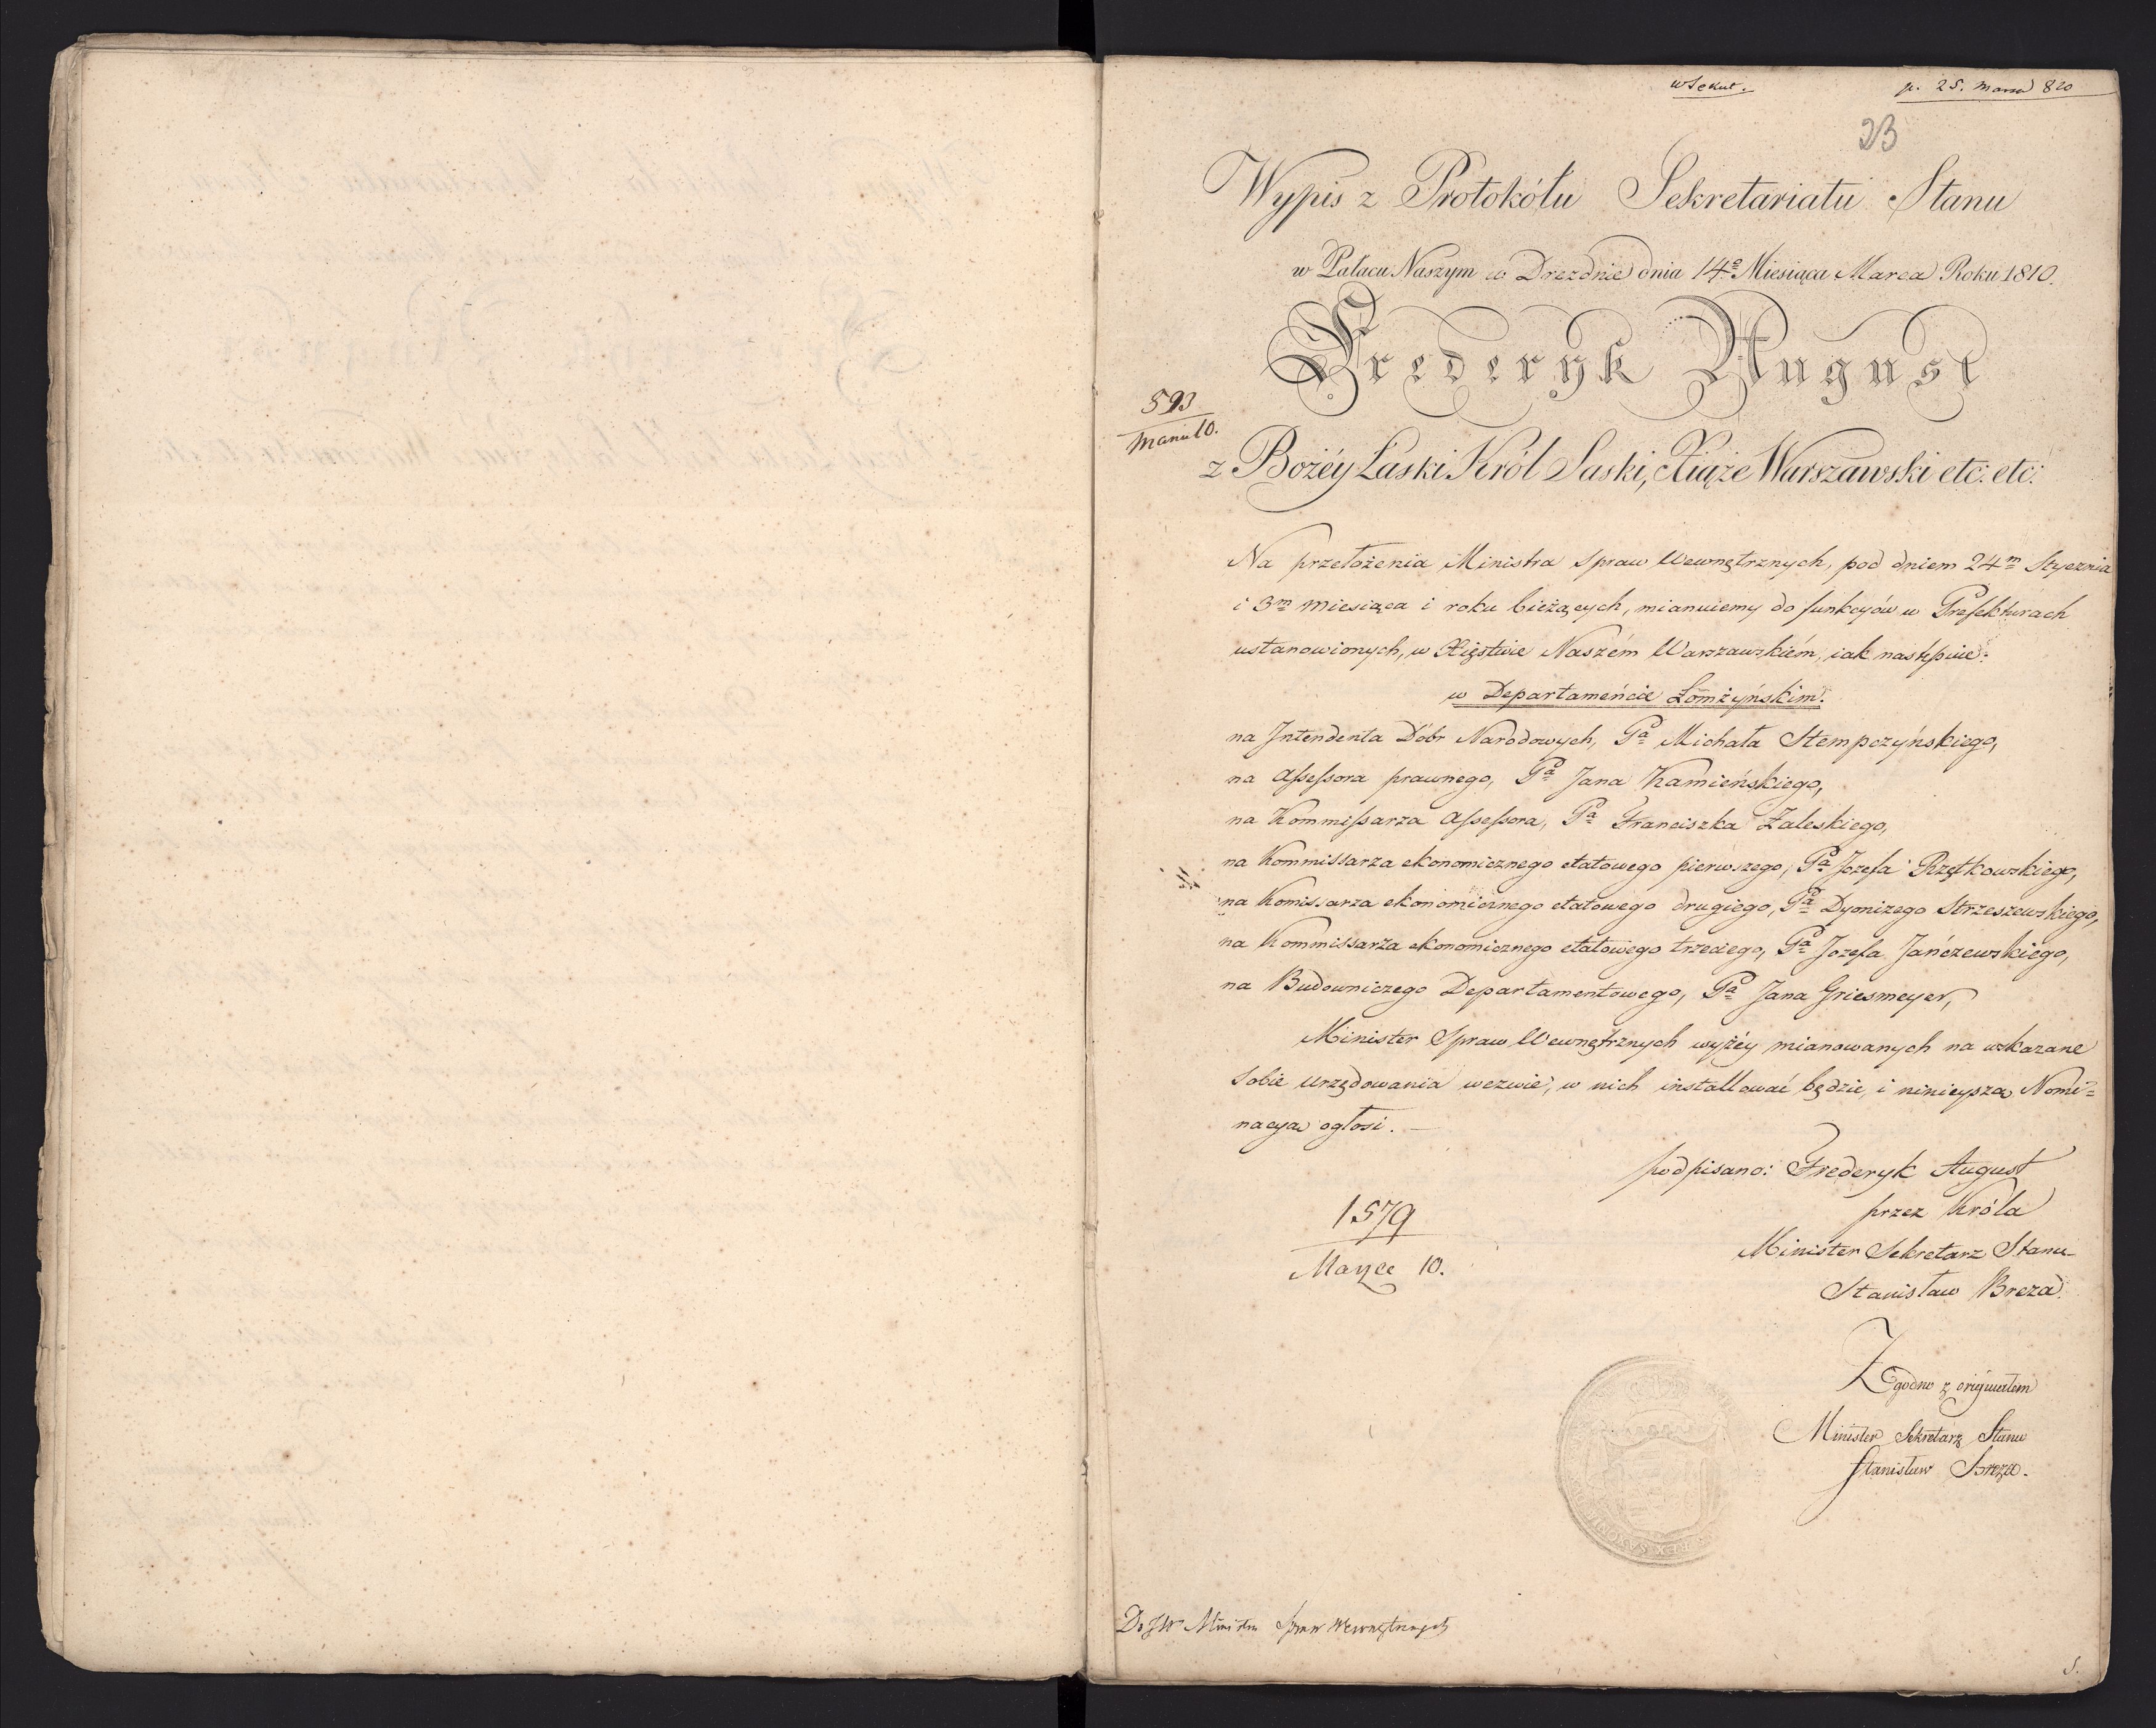 p. 25. Marca 810
23
Wypis z Protokółu Sekretariatu Stanu
w Pałacu Naszym w Dreźdnie dnia 14º Miesiąca Marca Roku 1810.
Frederyk August
593
z Bożéy Łaski Król Saski, Xiąże Warszawski etc: etc:
Na przełożenia Ministra Spraw Wewnętrznych, pod dniem 24m Stycznia
i 3m miesiąca i roku bieżących, mianuiemy do funkcyów w Prefekturach
ustanowionych, w Xięstwie Naszém Warszawskiém, iak nastęṕuie:
w Departamencie Łomżyńskim.
na Intendenta Dóbr Narodowych, Pa Michała Stempczyńskiego,
na Assessora prawnego, Pa Jana Kamieńskiego,
na Kommissarza Assessora, Pa Franciszka Zaleskiego,
na Kommissarza ekonomicznego etatowego pierwszego, Pa Jozefa Rzętkowskiego,
na Komissarza ekonomicznego etatowego drugiego, Pa Dyonizego Strzeszewskiego,
na Kommissarza ekonomicznego etatowego trzeciego, Pa Jozefa Jańczewskiego,
na Budowniczego Departamentowego, Pa Jana Griesmeyer,
Minister Spraw Wewnętrznych wyżéy mianowanych na wskazane
sobie urzędowania wezwie, w nich installować będzie, i ninieyszą Nomi=
nacyą ogłosi. —
podpisano: Frederyk August
przez Króla
Minister Sekretarz Stanu
Stanisław Breza.
1579
Marca 10.
Zgodno z originałem
Minister Sekretarz Stanu
Stanisław Breza.
REX SAXONIAE
Do JW Ministra Spraw Wewnętrznych